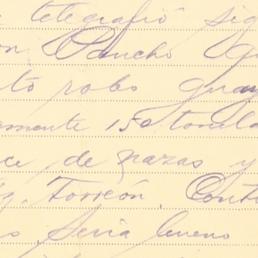 telegrafió sig
on Pancho Og
to robo guay
mente 150 tonela
ce de nazas y
g. Torreón, Cont
s Seria bueno